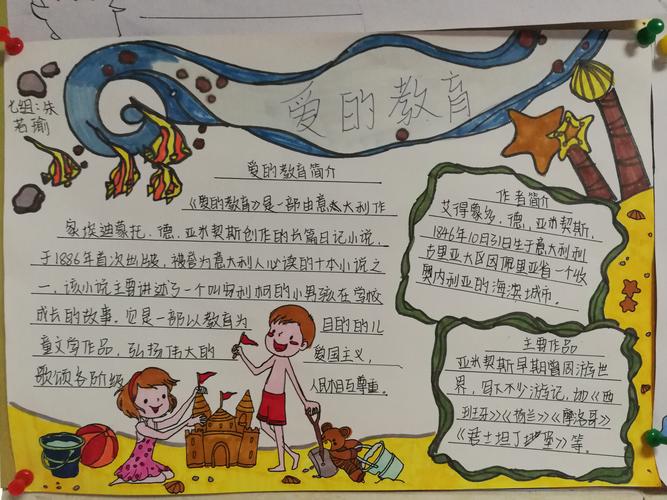 爱的教育
七组:朱
若瑜
爱的教育简介
《爱的教育》是一部由意大利作
家埃迪蒙托·德·亚米契斯创作的长篇日记小说,
于1886年首次出版,被誉为意大利人必读的十本小说之
一,该小说主要讲述了一个叫安利柯的小男孩在学校
成长的故事。它是一部以教育为目的的儿
童文学作品,弘扬伟大的爱国主义,
歌颂各阶级人民相互尊重。
作者简介
艾得蒙多·德·亚米契斯,
1846年10月31日生于意大利利
古里亚大区因佩里亚省一个收
奥内利亚的海滨城市。
主要作品
亚米契斯早期曾周游世
界,写大不少游记,如《西
班牙》《荷兰》《摩洛哥》
《君士坦丁堡》等。